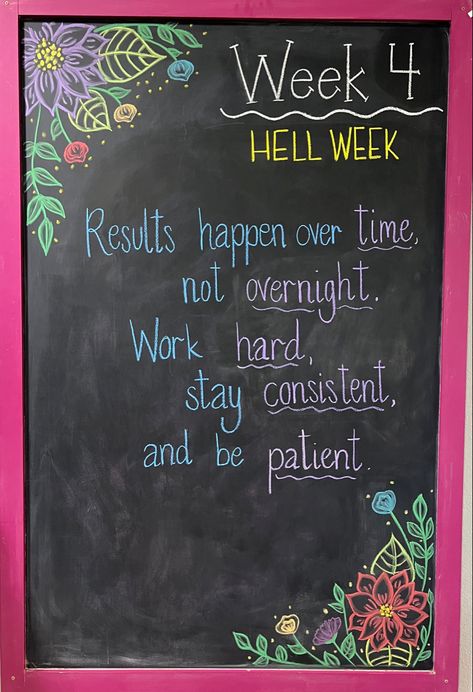 Week 4
HELL WEEK
Results happen over time,
not overnight.
Work hard,
stay consistent,
and be patient.